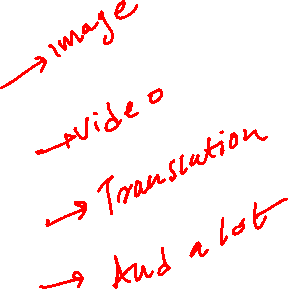 → image
→ video
→ Translation
→ And a lot